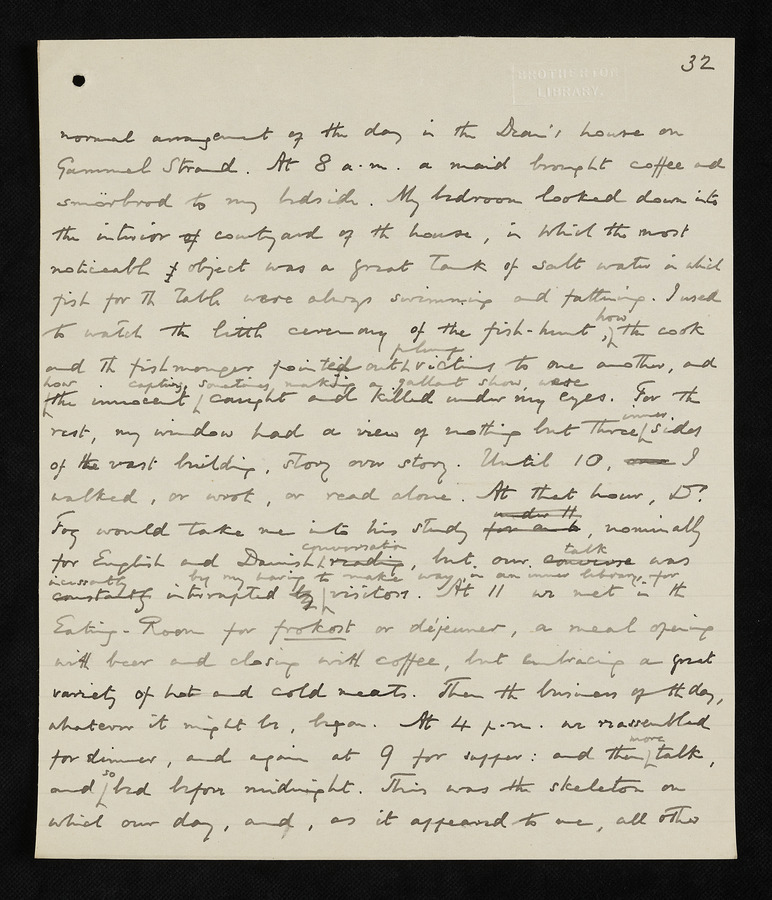 32
BROTHERTON
LIBRARY.
normal arrangement of the day in the Dean's house on
Gammel Strand. At 8 a.m. a maid brought coffee and
smörbrod to my bedside. My bedroom looked down into
the interior of courtyard of the house, in which the most
noticeable object was a great tank of salt water in which
fish for the table were always swimming and fattening. I used
how
to watch the little ceremony of the fish-hunt, the cook
plump
and the fishmonger pointed out victims to one another, and
how captives, sometimes, making a gallant show, were
the innocent caught and killed under my eyes. For the
inner
rest, my window had a view of nothing but three sides
of the vast building, story over story. Until 10, I
walked, or wrote, or read alone. At that hour, Dr.
under the
Fog would take me into his study for an, nominally
conversation talk
for English and Danish reading, but our converse was
incessantly by my having to make way, in an inner library, for
constantly interrupted by visitors. At 11 we met in the
Eating-Room for frokost or déjeuner, a meal opening
with beer and closing with coffee, but embracing a great
variety of hot and cold meats. Then the business of the day,
whatever it might be, began. At 4 p.m. we reassembled
more
for dinner, and again at 9 for supper: and then talk,
so
and bed before midnight. This was the skeleton on
which our day, and, as it appeared to me, all other